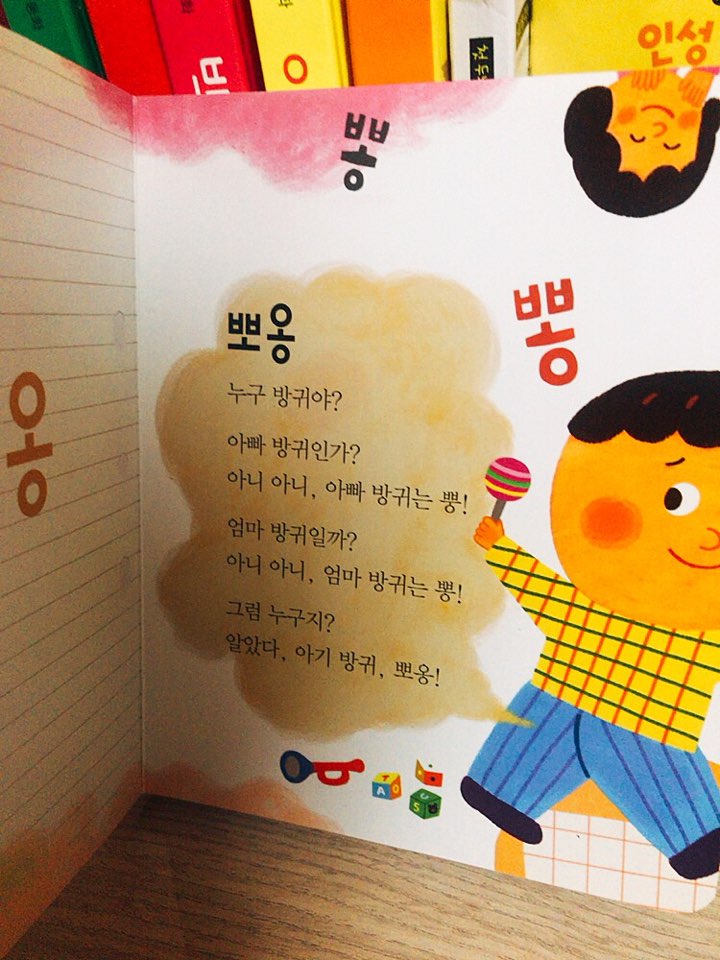 인성
뽕
뽕
뽀옹
옹
누구 방귀야?
아빠 방귀인가?
아니 아니, 아빠 방귀는 뿡!
엄마 방귀일까?
아니 아니, 엄마 방귀는 뽕!
그럼 누구지?
알았다, 아기 방귀, 뽀옹!